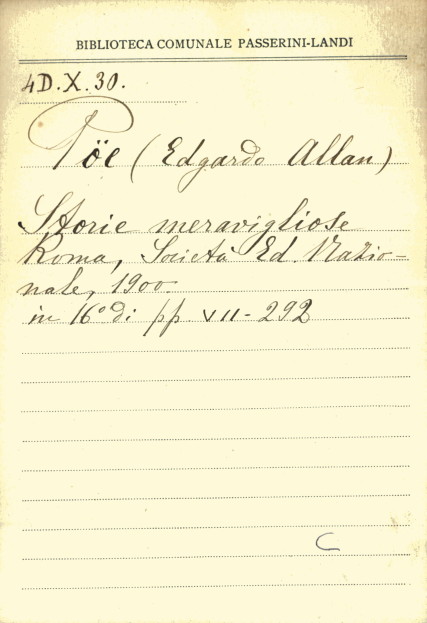 BIBLIOTECA COMUNALE PASSERINI-LANDI
4D.X.30.
Pöe (Edgardo Allan)
Storie meravigliose
Roma, Società Ed. Nazio-
nale, 1900.
in 16° di pp VII-292
C